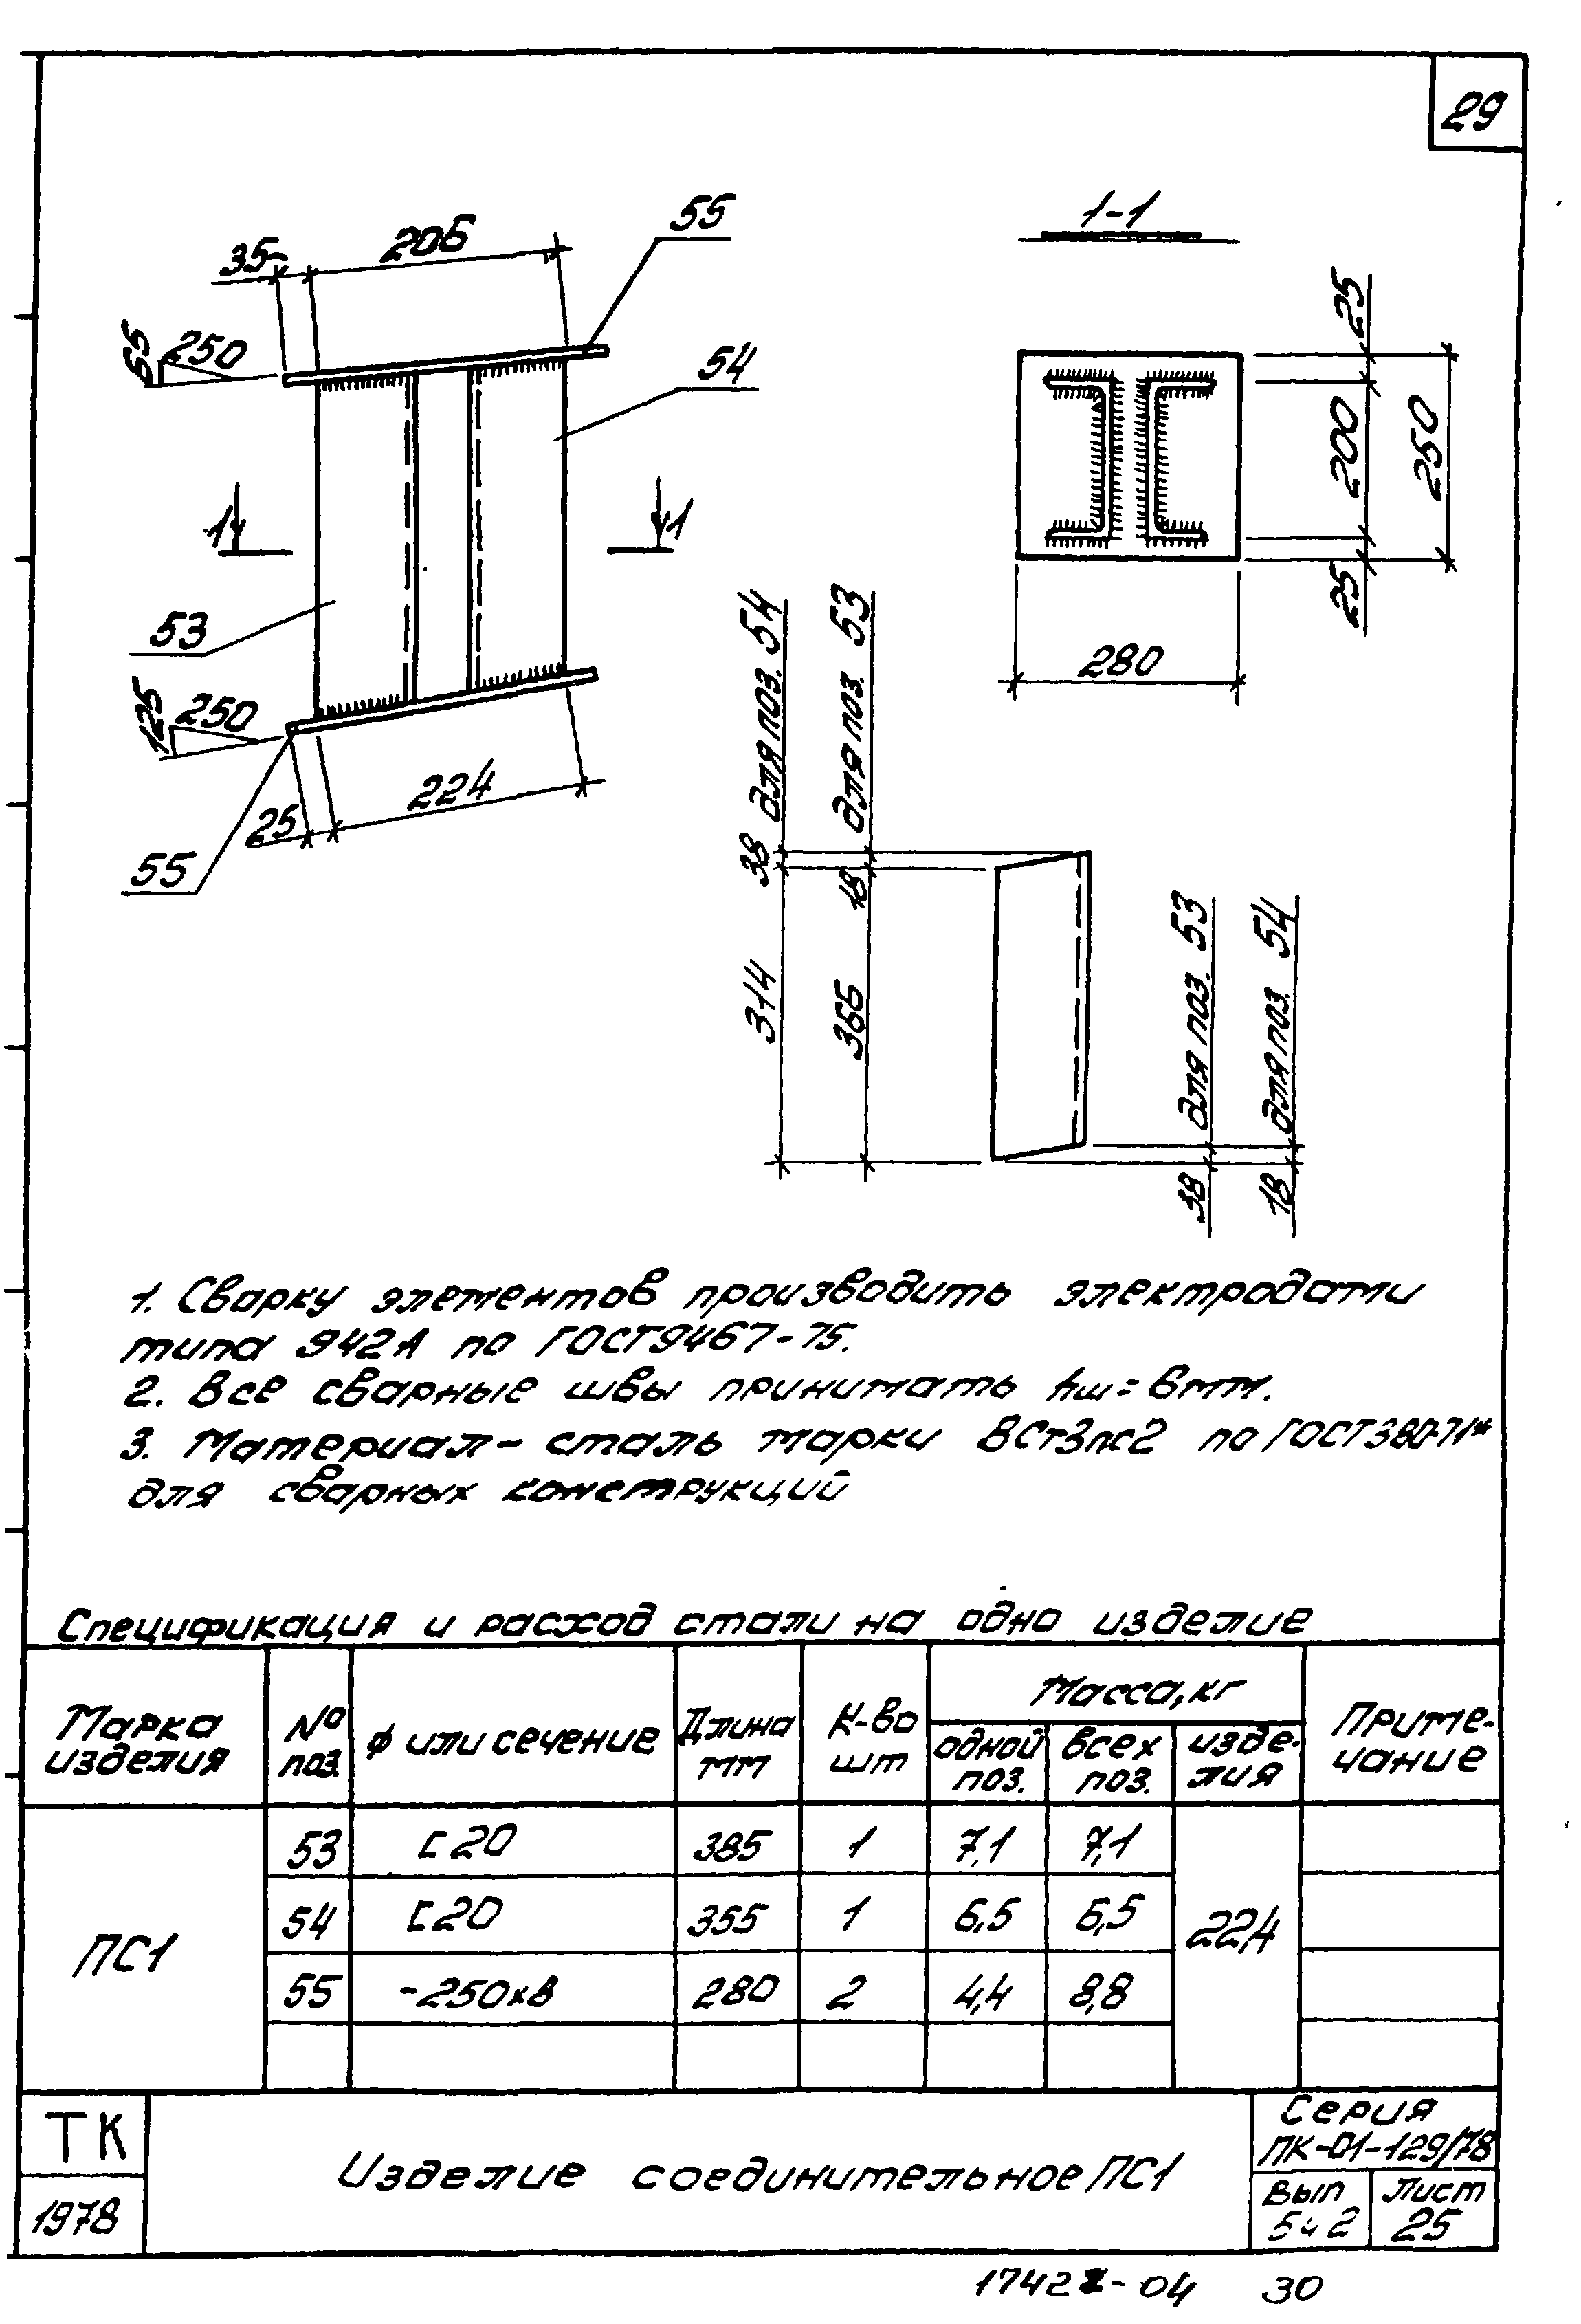 29
35
206
55
1-1
65
250
54
25
200
250
25
1
1
53
280
125
250
25
224
55
для поз. 54
для поз. 53
38
18
314
366
для поз. 53
для поз. 54
38
18
1. Сварку элементов производить электродами
типа Э42А по ГОСТ9467-75.
2. Все сварные швы принимать hш=6мм.
3. Материал- сталь марки ВСт3пс2 по ГОСТ380-71*
для сварных конструкций
Спецификация и расход стали на одно изделие
Марка изделия | № поз. | ф или сечение | Длина мм | К-во шт | Масса, кг | Приме-чание
одной поз. | всех поз. | изде-лия
ПС1 | 53 | [20 | 385 | 1 | 7,1 | 7,1 | 22,4
54 | [20 | 355 | 1 | 6,5 | 6,5
55 | -250×8 | 280 | 2 | 4,4 | 8,8
ТК
1978
Изделие соединительное ПС1
Серия
ПК-01-129/78
Вып Лист
5ч2 25
30